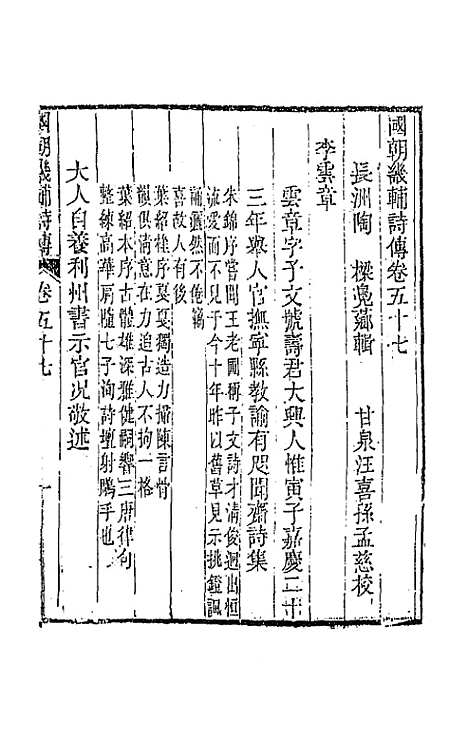 國朝畿輔詩傳卷五十七
長洲陶 樑鳧薌輯 甘泉汪喜孫孟慈校
李雲章
雲章字子文號壽君大興人惟寅子嘉慶二十
三年舉人官撫寧縣教諭有咫聞齋詩集
朱錦序嘗聞王老圃稱子文詩才清俊迥出恒
流愛而不見于今十年昨以舊草見示挑鐙諷
誦灑然不倦竊
喜故人有後
葉紹楏序戛戛獨造力掃陳言骨
韻俱清意在力追古人不拘一格
葉紹本序古體雄深雅健嗣響三唐律句
整練高華肩隨七子洵詩壇射鵰手也
大人自養利州書示官況敬述
國朝畿輔詩傳 卷五十七 一